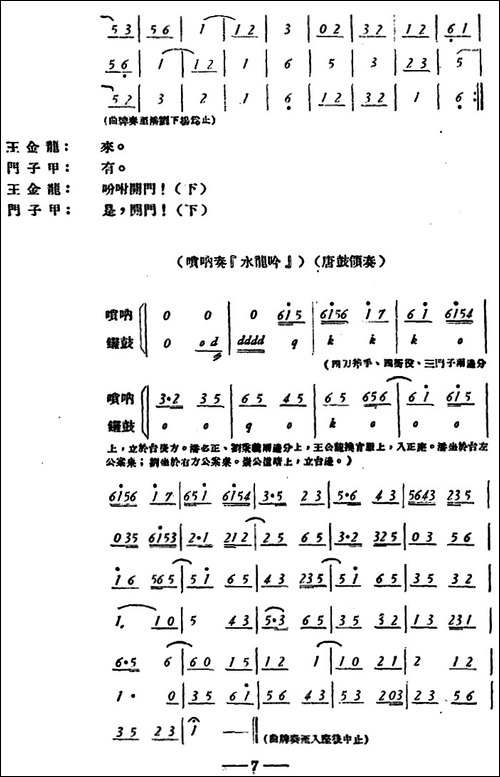 5 3 | 5 6 | 1 | 1 2 | 3 | 0 2 | 3 2 | 1 2 | 6 1 |
5 6 | 1 | 1 2 | 1 | 6 | 5 | 3 | 2 3 | 5 |
5 2 | 3 | 2 | 1 | 6 | 1 2 | 3 2 | 1 | 6 :||
王金龍：來。
門子甲：有。
王金龍：吩咐開門！（下）
門子甲：是，開門！（下）
（嗩吶奏『水龍吟』）（唐鼓領奏）
嗩吶 0 0 | 0 6 1 5 | 6156 1 7 | 6 1 6154 |
鑼鼓 0 o d | dddd q | k k | k o
（四刀斧手、四衙役、三門子兩邊分
嗩吶 3·2 3 5 | 6 5 4 5 | 6 5 656 | 6 1 6 1 5 |
鑼鼓 o o | q o | k o | o o
6156 1 7 | 651 6154 | 3·5 2 3 | 5·6 4 3 | 5643 235 |
035 6153 | 2·1 212 | 2 5 6 5 | 3·2 325 | 0 3 5 6 |
1 6 565 | 5 1 6 5 | 4 3 235 | 5 1 6 5 | 3 5 3 2 |
1. 1 0 | 5 4 3 | 5·3 6 5 | 3 5 3 2 | 1 3 231 |
6·5 6 | 6 0 1 5 | 1 2 1 | 1 0 2 1 | 2 1 2 |
1· 0 | 3 5 6 1 | 5 6 4 3 | 5 3 203 | 2 3 5 6 |
3 5 2 3 | 1 — ||
（曲牌奏至入座後中止）
—7—